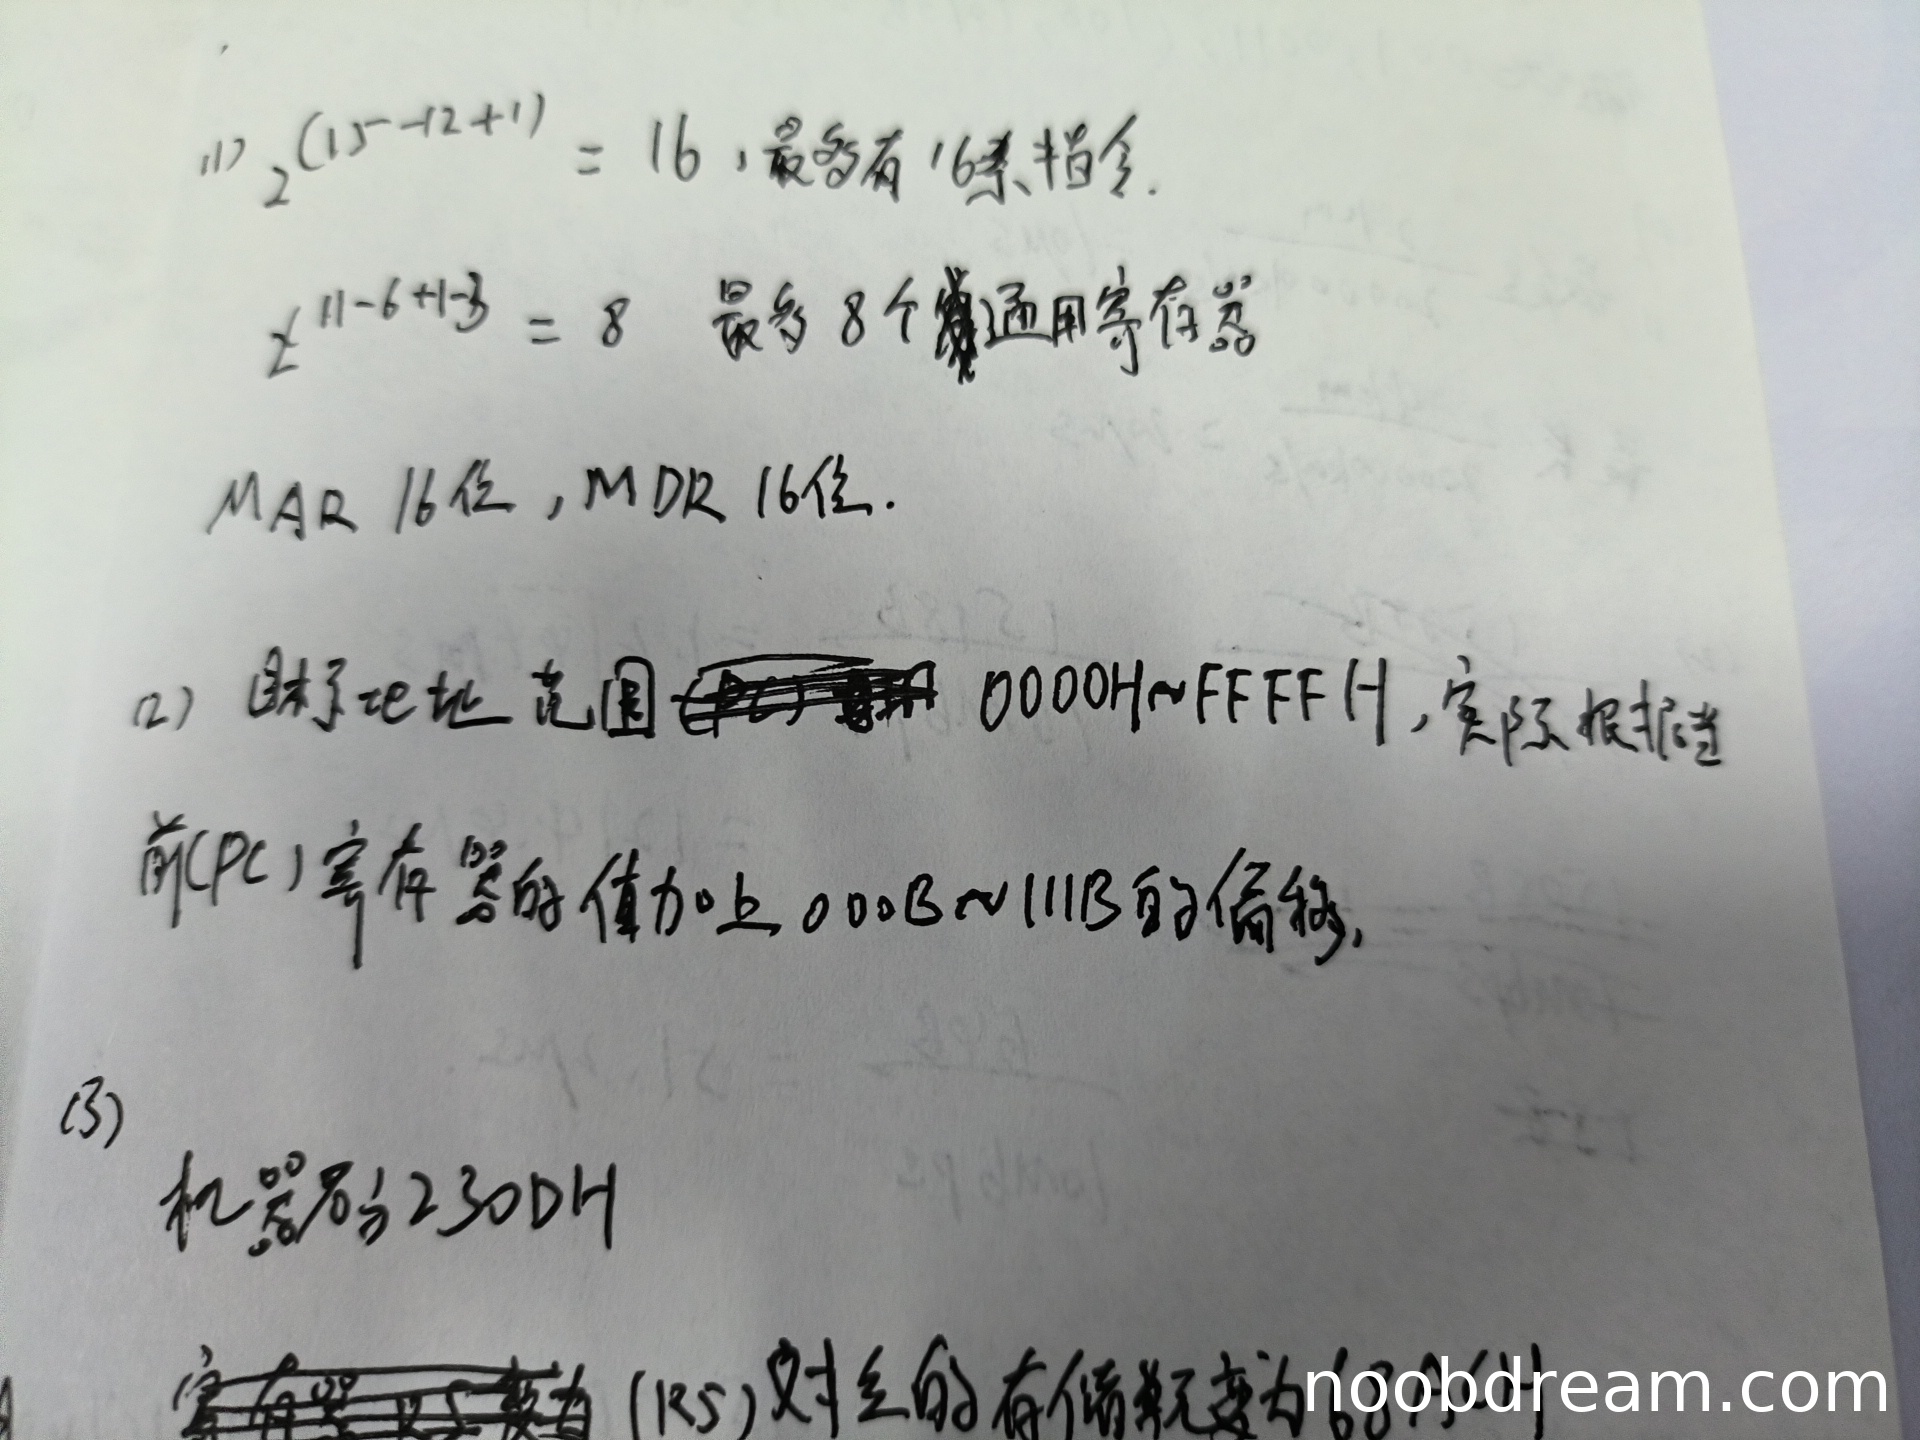 (1) 2^(15-12+1) = 16，最多有16条指令.
2^11-6+1-3 = 8 最多8个通用寄存器
MAR 16位，MDR 16位.
(2) 目标地址范围 0000H~FFFFH，实际根据当
前(PC)寄存器的值加上000B~111B的偏移，
(3)
机器码为230DH
(R5)对应的存储单元变为
noobdream.com